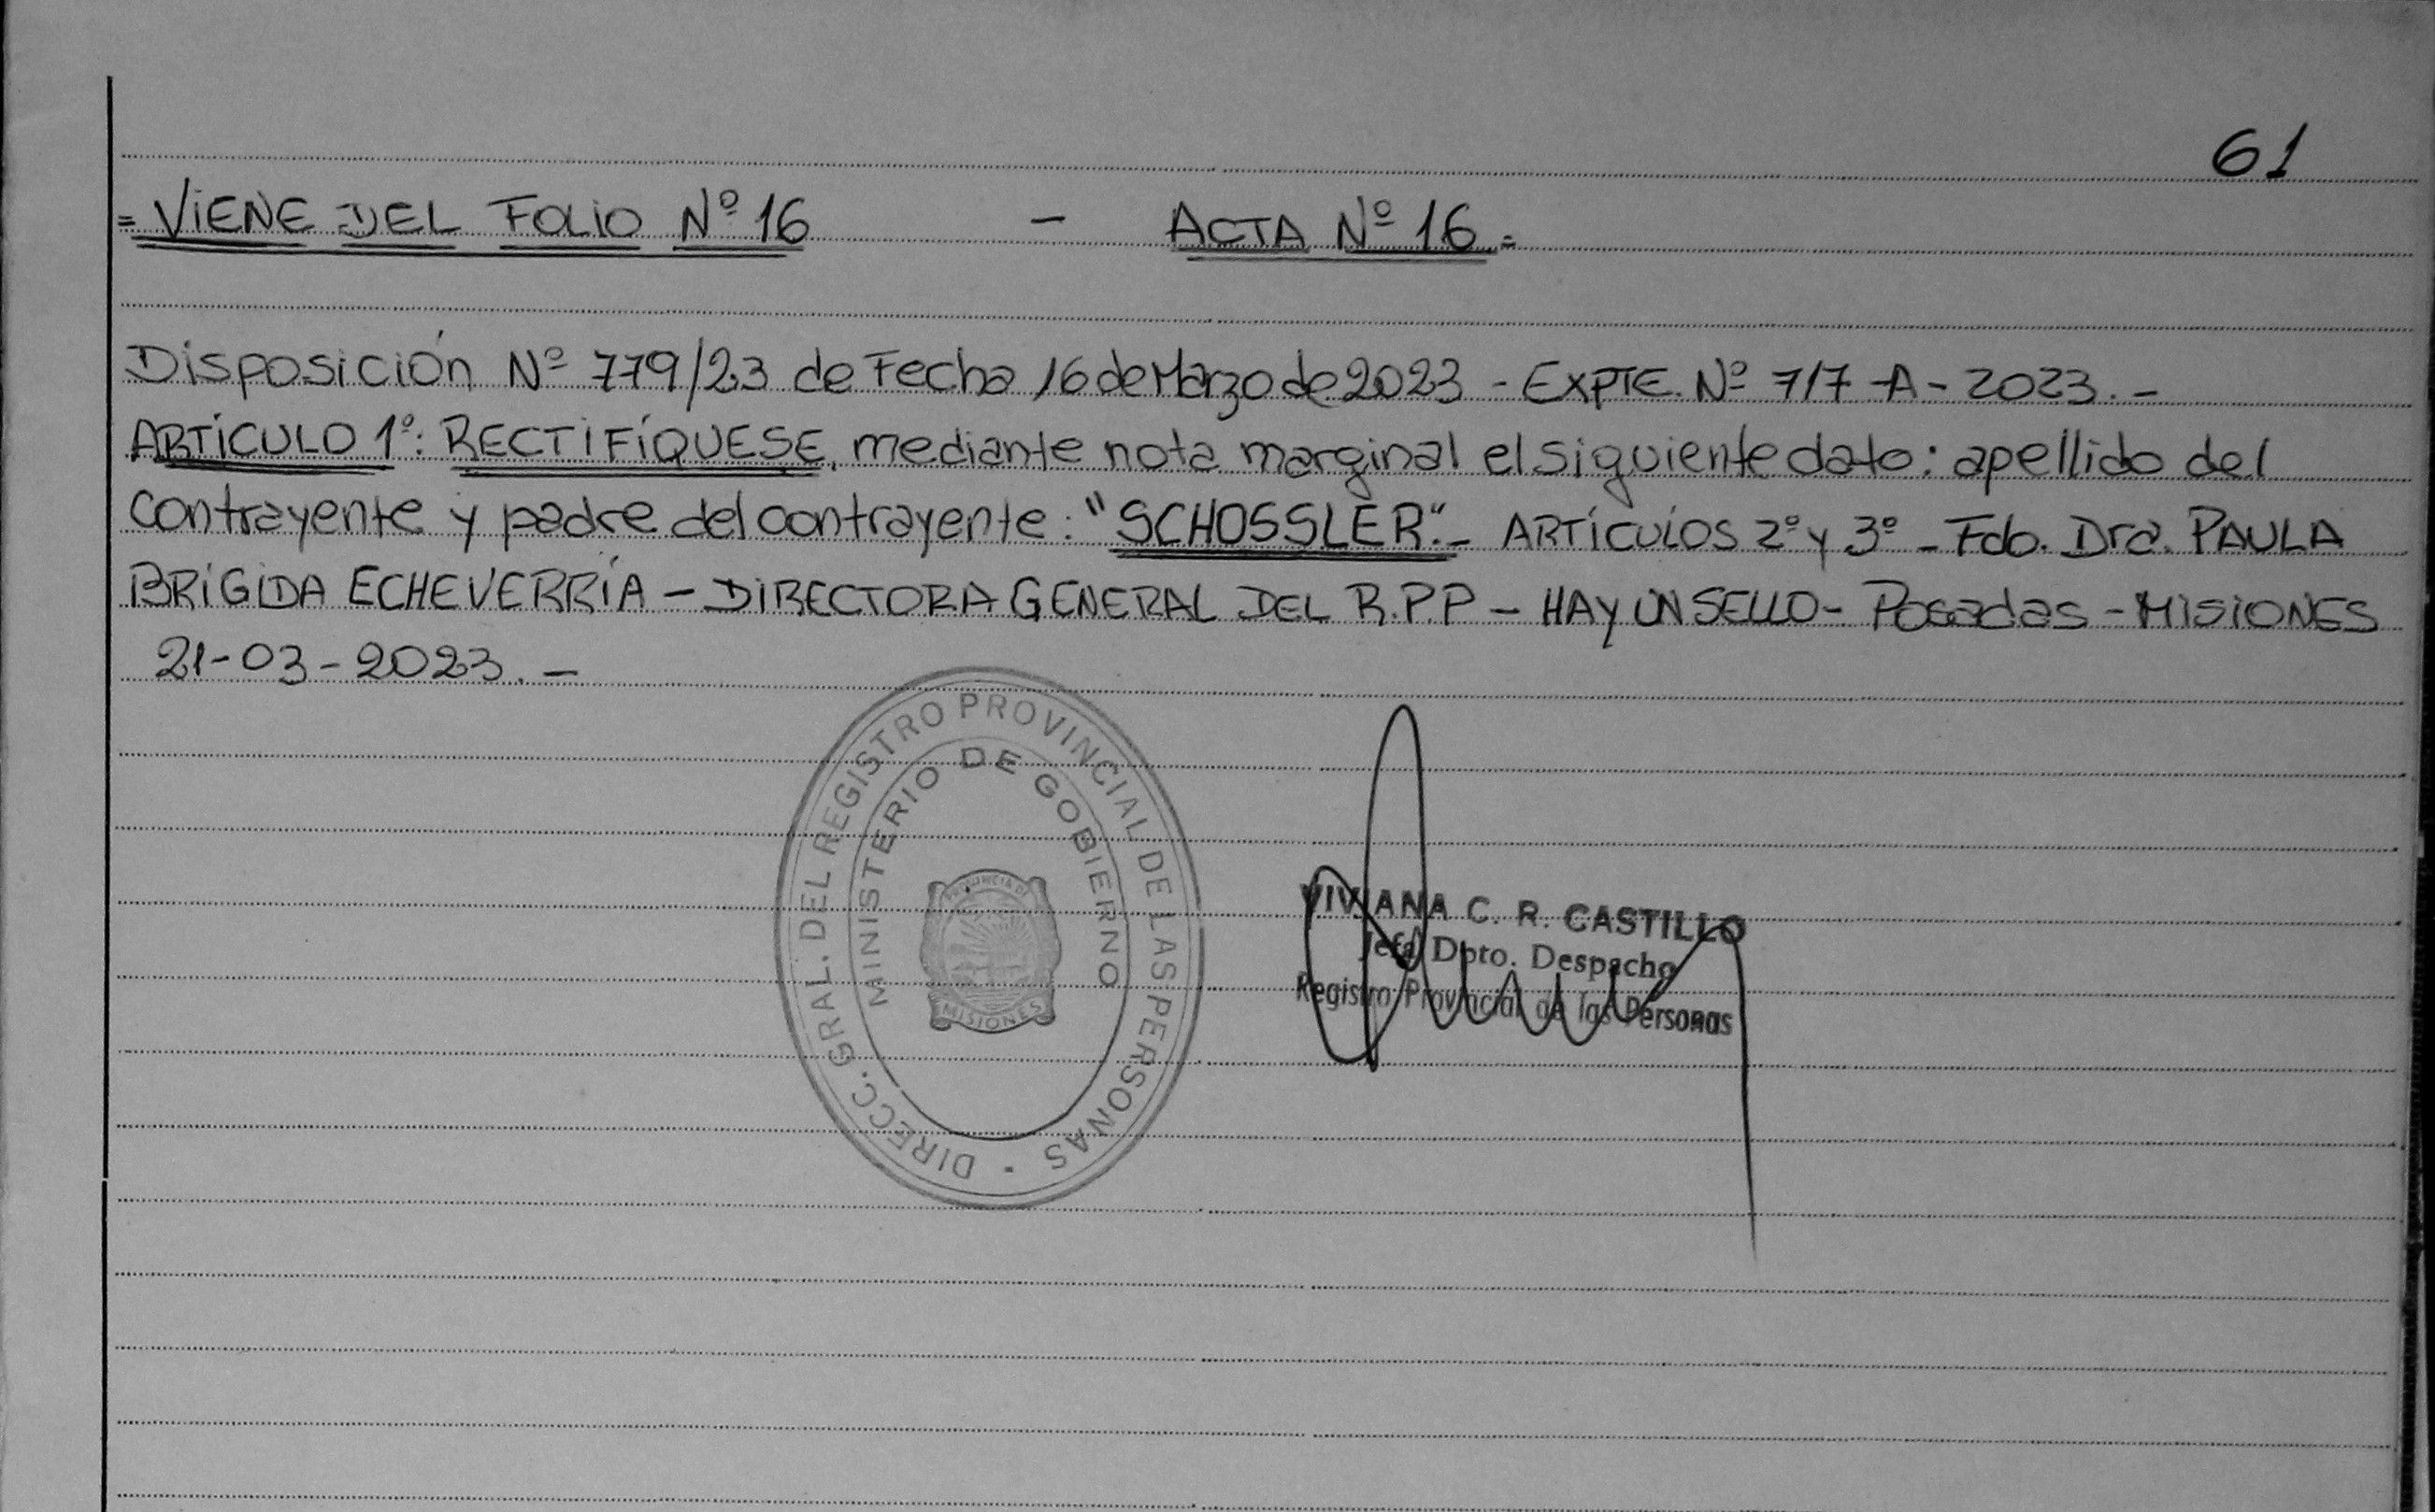 61
= VIENE DEL FOLIO Nº 16 - ACTA Nº 16 =
Disposición Nº 779/23 de Fecha 16 de Marzo de 2023 - EXPTE. Nº 717-A-2023.-
ARTÍCULO 1º: RECTIFÍQUESE, mediante nota marginal el siguiente dato: apellido del
contrayente y padre del contrayente: "SCHOSSLER".- ARTÍCULOS 2º y 3º - Fdo. Dra. PAULA
BRÍGIDA ECHEVERRÍA - DIRECTORA GENERAL DEL R.P.P - HAY UN SELLO - Posadas - MISIONES
21-03-2023.-
DIRECC. GRAL. DEL REGISTRO PROVINCIAL DE LAS PERSONAS
MINISTERIO DE GOBIERNO
PROVINCIA DE
MISIONES
VIVIANA C. R. CASTILLO
Jefa Dpto. Despacho
Registro Provincial de las Personas